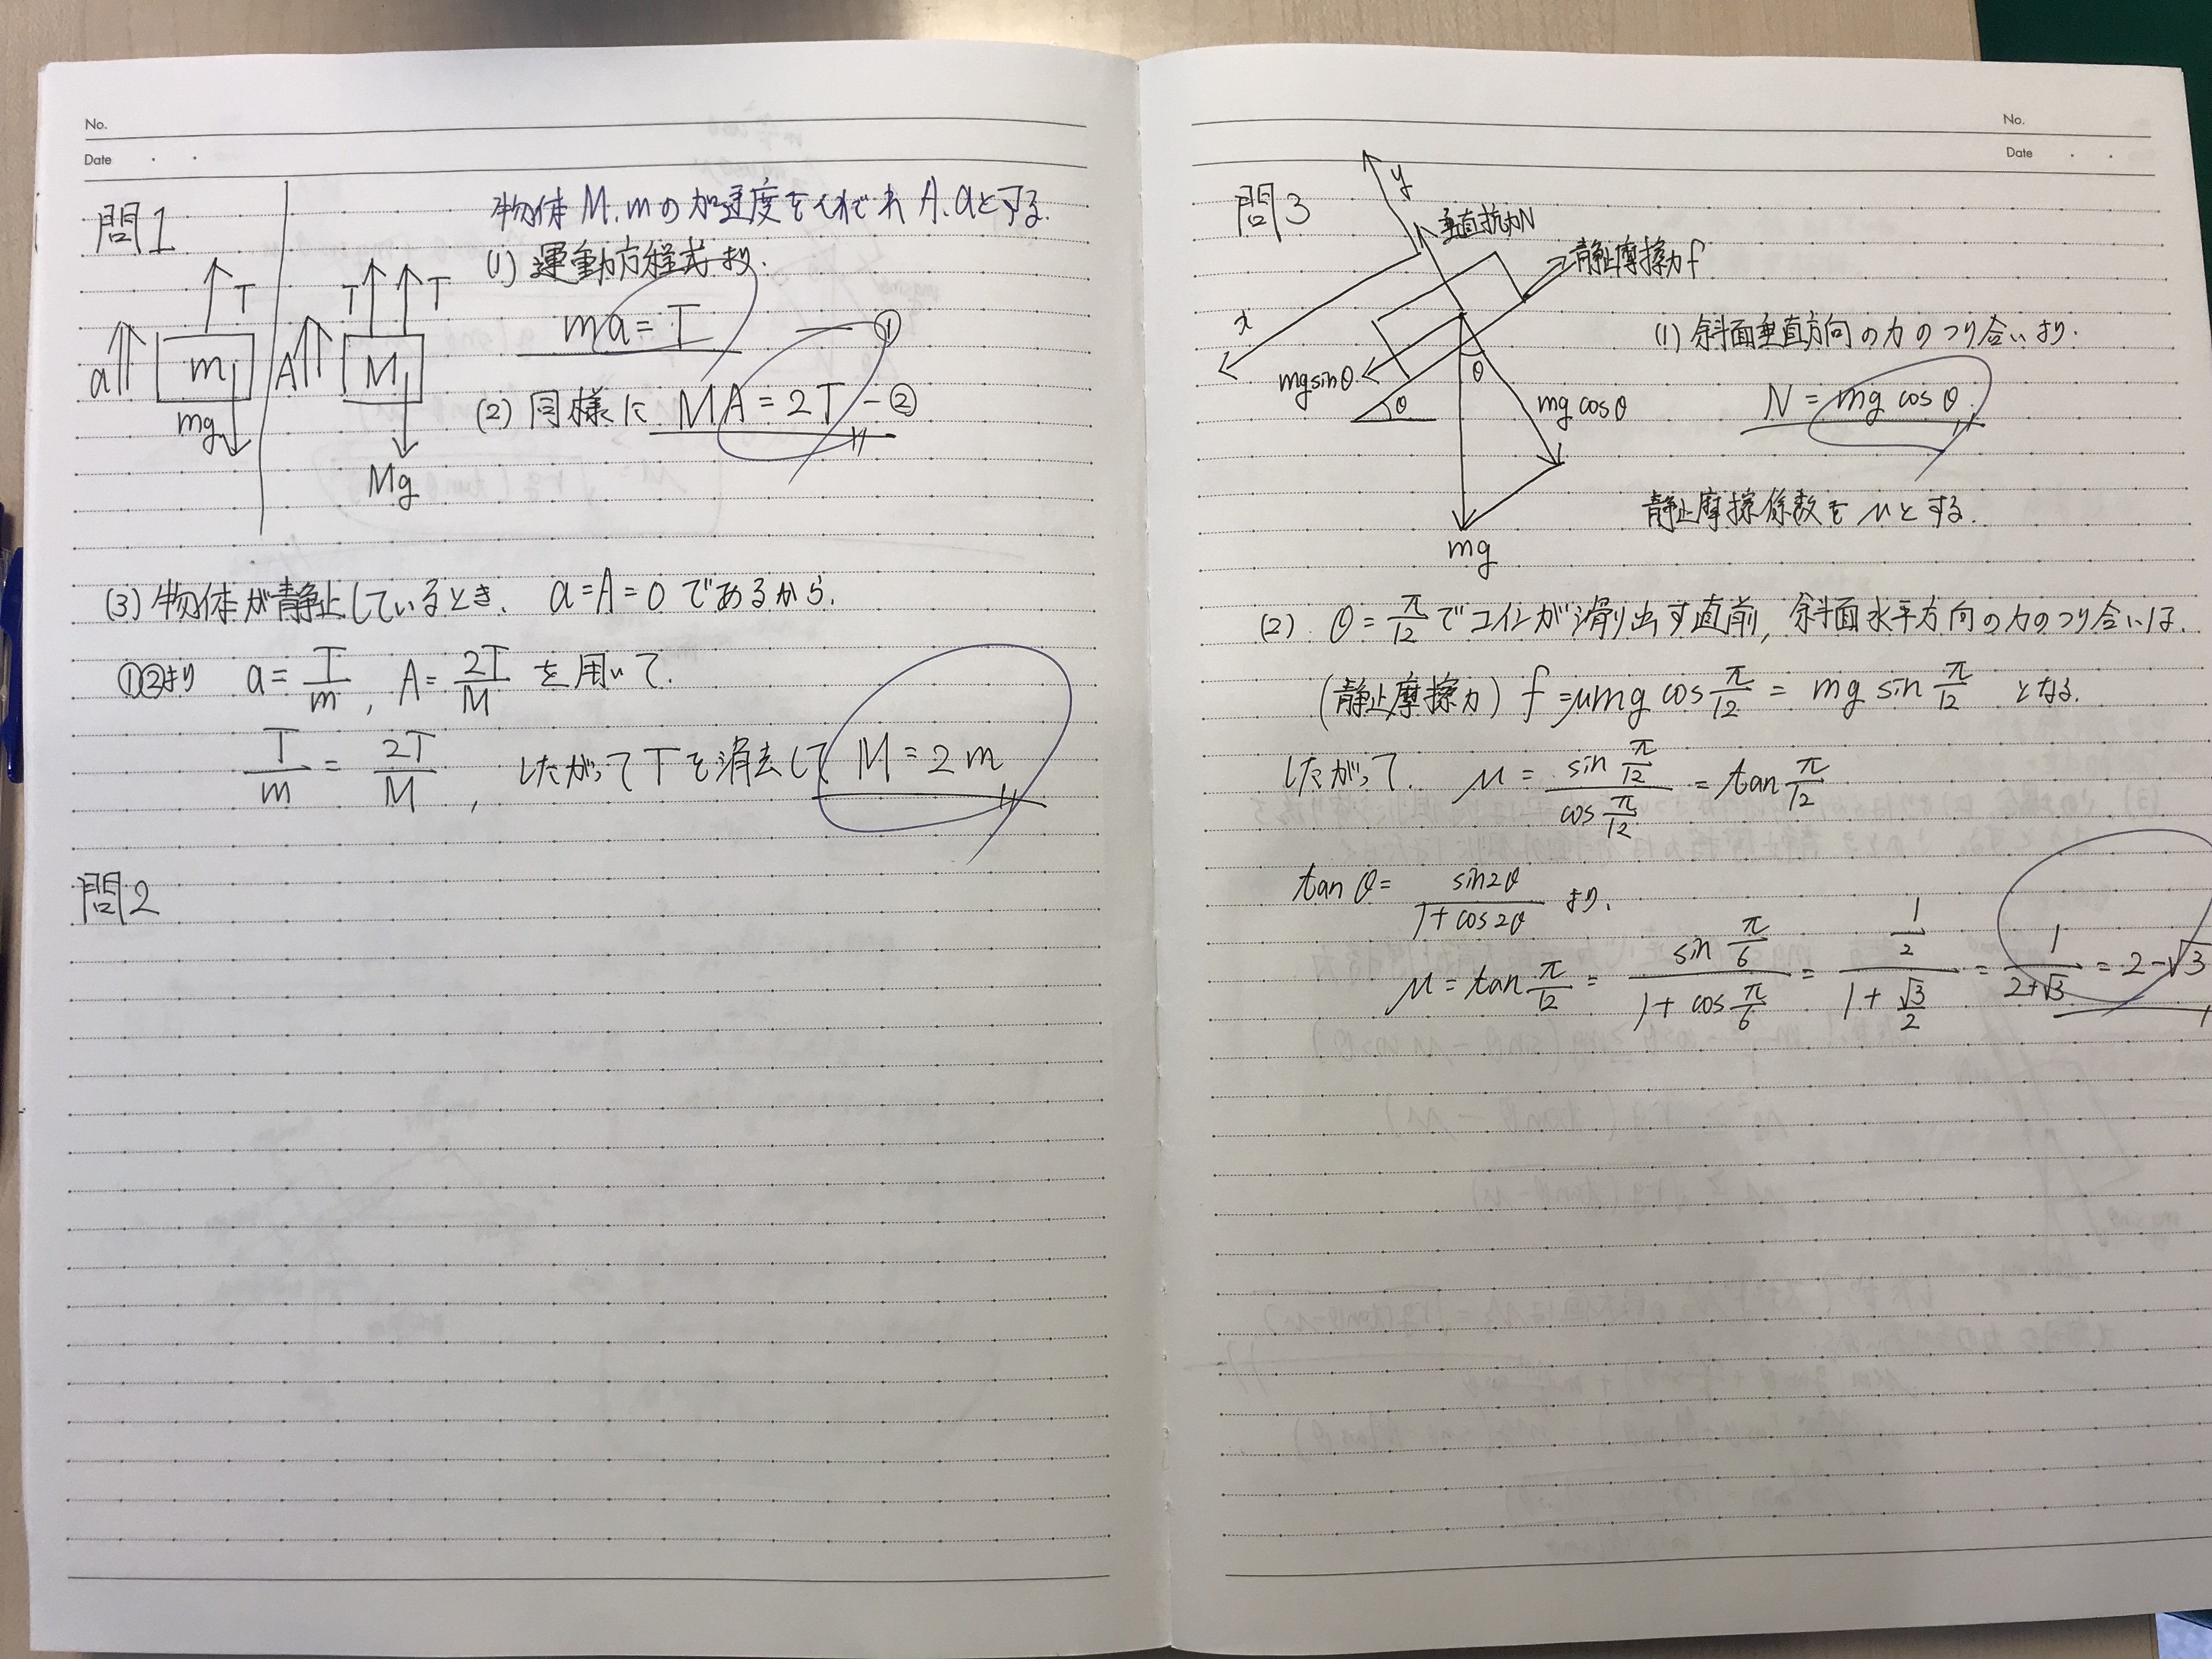 No.
Date
問1
物体 M, mの加速度をそれぞれ A, aとする.
(1) 運動方程式より.
ma = T ― ①
(2) 同様に MA = 2T ― ②
T
a
m
mg
T
T
A
M
Mg
(3) 物体が静止しているとき. a = A = 0 であるから.
①②より a = T/m , A = 2T/M を用いて.
T/m = 2T/M , したがって T を消去して M = 2m
問2
No.
Date
問3
y
垂直抗力N
静止摩擦力 f
x
mg sinθ
θ
θ
mg cosθ
mg
(1) 斜面垂直方向の力のつり合いより.
N = mg cosθ.
静止摩擦係数を μとする.
(2). θ = π/12 でコインが滑り出す直前, 斜面水平方向の力のつり合いは.
(静止摩擦力) f = μmg cos π/12 = mg sin π/12 となる.
したがって. μ = sin π/12 / cos π/12 = tan π/12
tan θ = sin2θ / 1 + cos2θ より.
μ = tan π/12 = sin π/6 / 1 + cos π/6 = 1/2 / 1 + √3/2 = 1 / 2+√3 = 2-√3